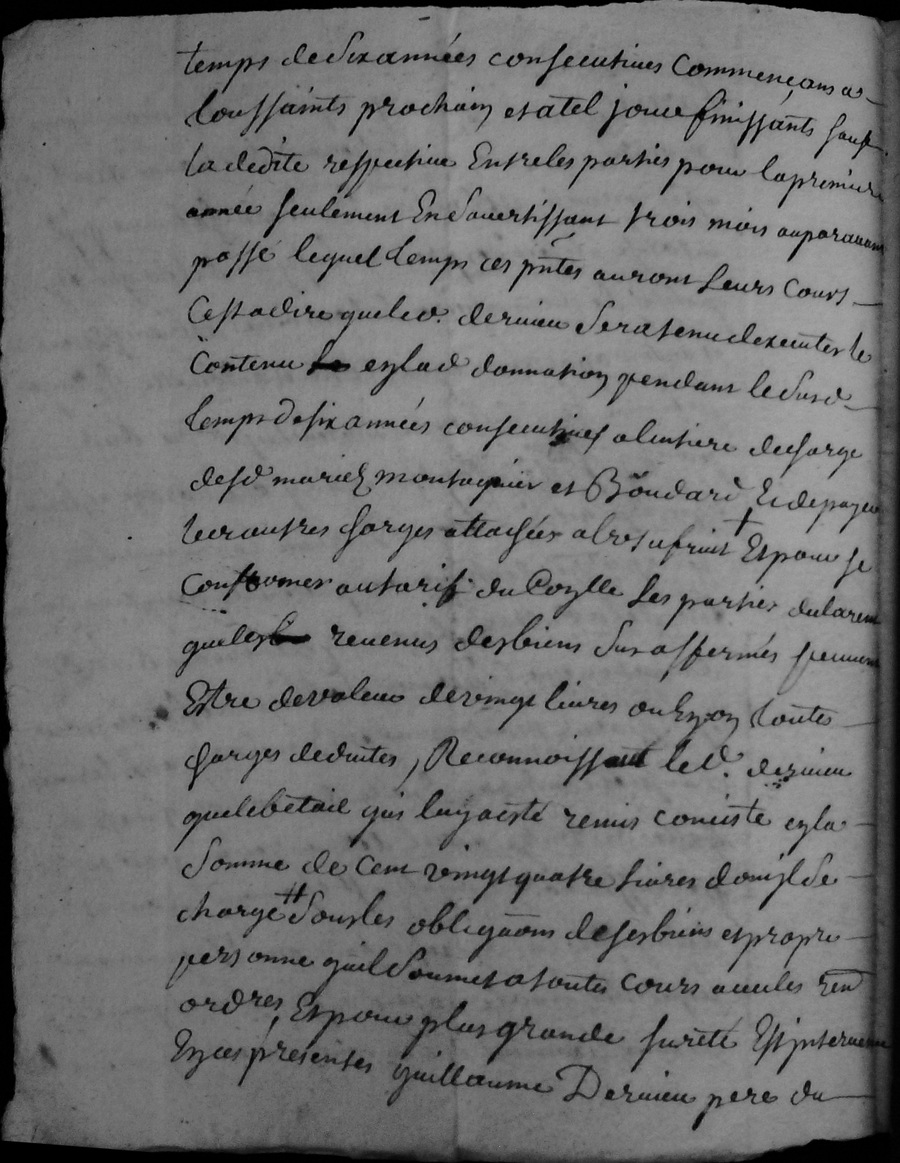 temps de six années consecutives commençans a
toussaints prochain et a tel jour finissants sauf
la dedite respective Entre les parties pour la premiere
année seulement En s'avertissant trois mois auparavant
passé lequel temps ces pntes auront leurs cours
Cest a dire que led. dernieu sera tenu dexecuter le
contenu en lad donnation pendant le susd
temps de six années consecutives a l'entiere decharge
desd mariez montagnier et Boudard Et de payer
les autres charges attachées a l'usufruit + Et pour se
Conformer au tarif du Controlle les parties declarent
que les revenus des biens sus affermés peuvent
Estre de valeur de vingt livres ou Environ toute
charges deduites, Reconnoissant led. dernieu
que le betail qui luy a esté remis consiste en la
somme de cent vingt quatre livres dont il se
charge # sous les obligaons de ses biens et propre
personne quil soumet a toutes cours avec les ren
ordres, Et pour plus grande sureté Est intervenu
En ces presentes guillaume Dernieu pere du